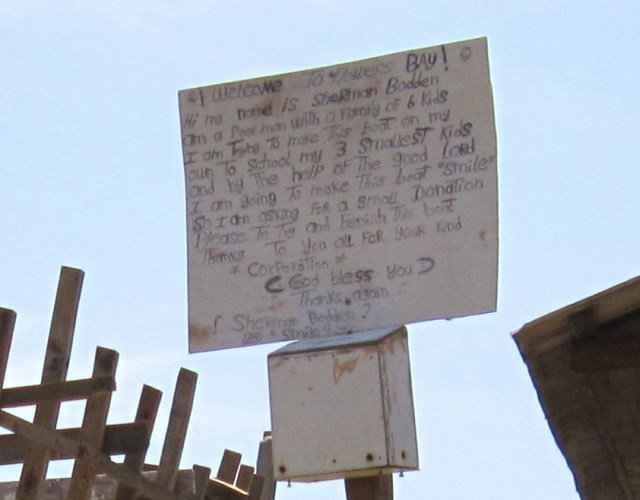 ! Welcome To Mullers BAY!
Hi my name is Sherman Bodden
am a Poor man with a Family of 6 Kids
I am Trying To make This boat on my
own To School my 3 Smallest Kids
and by The help of The good Lord
I am going To make This boat "Smile"
So I am asking For a Small Donation
please To Try and Fenish This boat
Thanks To you all For your Kind
* Corporation *
( God bless you )
Thanks again
Sherman Bodden
"Smile"